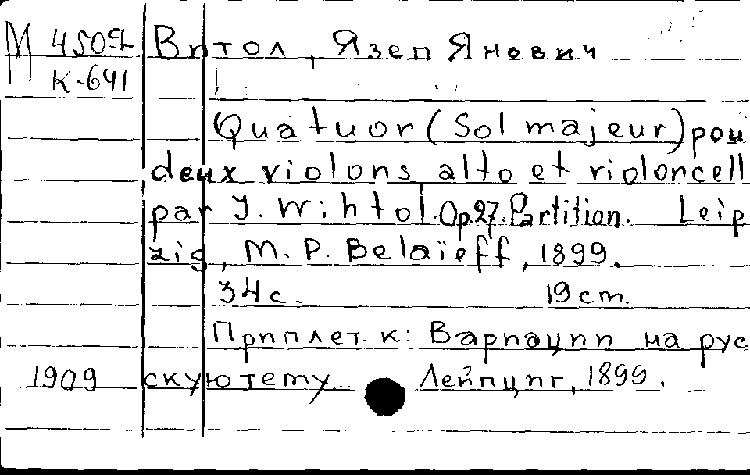 М 450  Витол, Язеп Янович
К-641
Quatuor (Sol majeur) pou
deux violons alto et violoncell
par J. Wihtol. Op.27. Partition. Leip
zig, M. P. Belaïeff, 1899.
34 с. 19 cm.
Приплет. к: Вариации на рус
1909 скую тему Лейпциг, 1899.